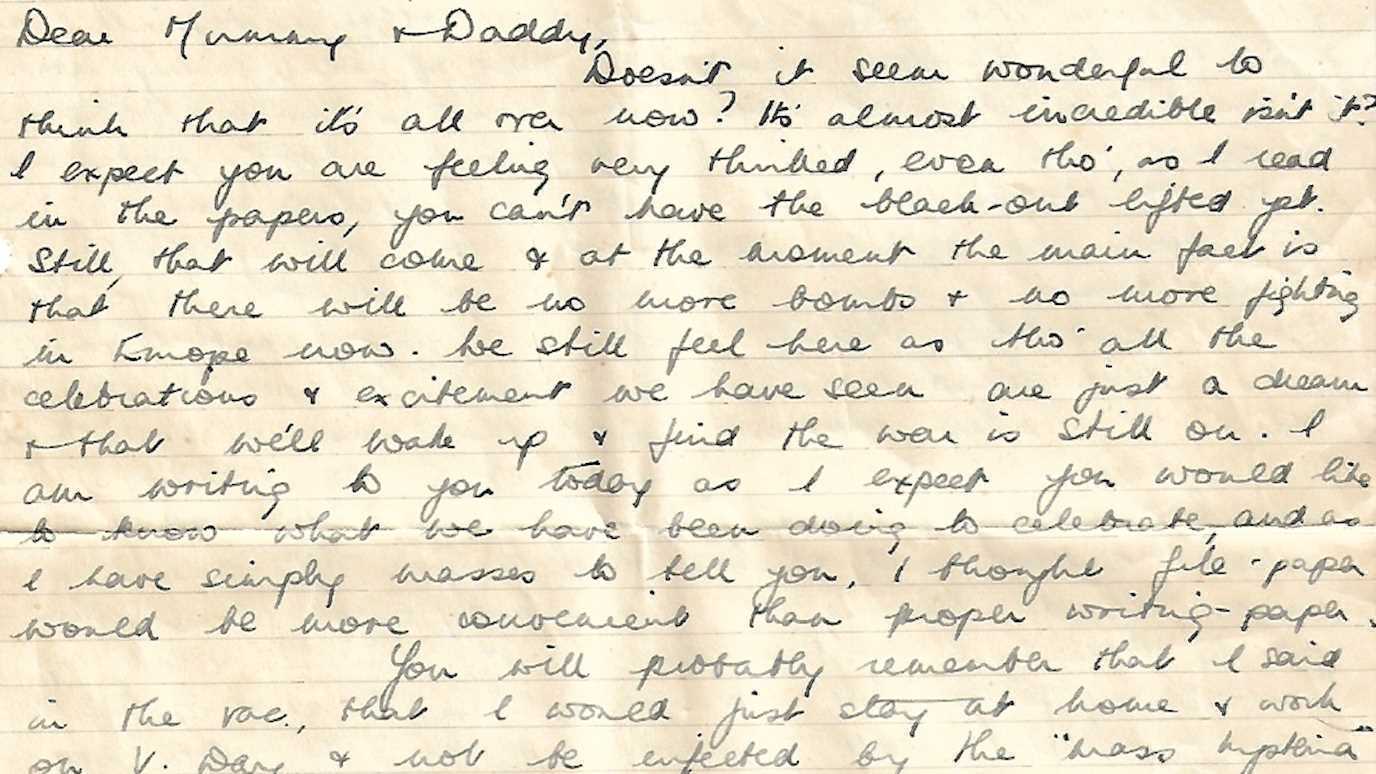 Dear Mummy & Daddy,
Doesn't it seem wonderful to
think that it's all over now? It's almost incredible isn't it?
I expect you are feeling very thrilled, even tho', as I read
in the papers, you can't have the black-out lifted yet.
Still, that will come & at the moment the main fact is
that there will be no more bombs & no more fighting
in Europe now. We still feel here as tho' all the
celebrations & excitement we have seen are just a dream
& that we'll wake up & find the war is still on. I
am writing to you today as I expect you would like
to know what we have been doing to celebrate, and as
I have simply masses to tell you, I thought file-paper
would be more convenient than proper writing-paper.
You will probably remember that I said
in the vac., that I would just stay at home & work
on V. Day & not be infected by the "mass